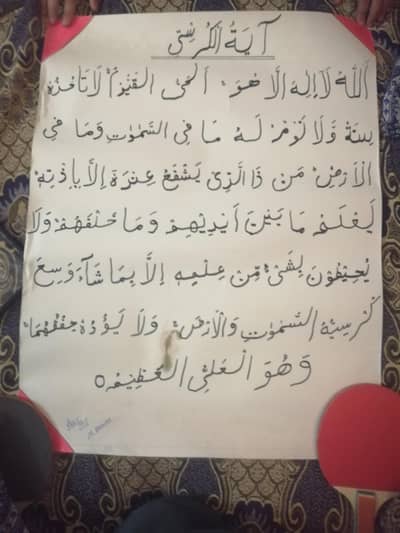 آيَةُ الْكُرْسِيِّ
اَللّٰهُ لَا اِلٰهَ اِلَّا هُوَ ۚ اَلْحَيُّ الْقَيُّوْمُ ۚ لَا تَاْخُذُهٗ
سِنَةٌ وَّلَا نَوْمٌ ؕ لَهٗ مَا فِي السَّمٰوٰتِ وَمَا فِي
الْاَرْضِ ؕ مَنْ ذَا الَّذِيْ يَشْفَعُ عِنْدَهٗ اِلَّا بِاِذْنِهٖ ؕ
يَعْلَمُ مَا بَيْنَ اَيْدِيْهِمْ وَمَا خَلْفَهُمْ ۚ وَلَا
يُحِيْطُوْنَ بِشَيْءٍ مِّنْ عِلْمِهٖ اِلَّا بِمَا شَآءَ ۚ وَسِعَ
كُرْسِيُّهُ السَّمٰوٰتِ وَالْاَرْضَ ۚ وَلَا يَـُٔوْدُهٗ حِفْظُهُمَا ۚ
وَهُوَ الْعَلِيُّ الْعَظِيْمُ ○